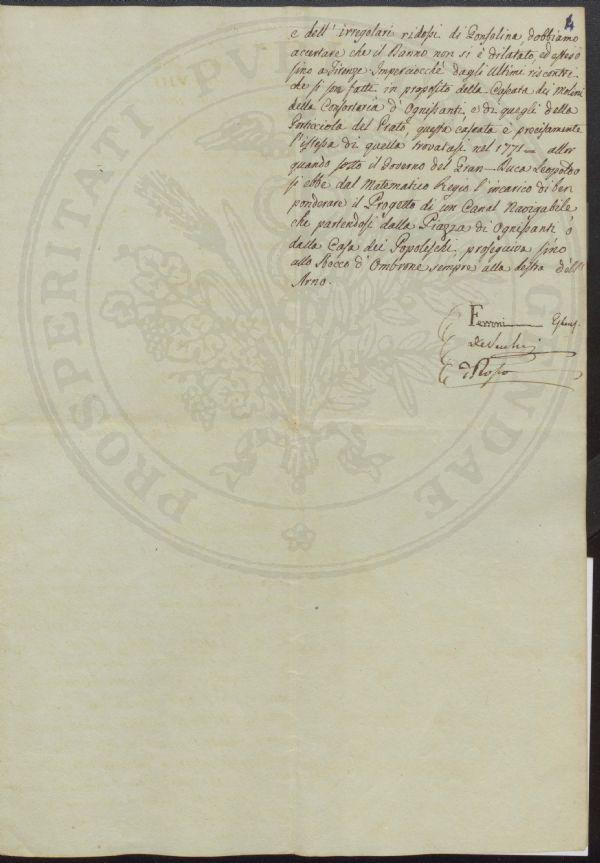 4
e dell' irregolari ridossi di Gonfolina dobbiamo
accertare che il Danno non si è dilatato, ed esteso
sino a Firenze. Imperciocchè dagli ultimi riscontri
che si son fatti in proposito della Cascata dei Molini
della Consortaria d' Ognissanti, e di quegli della
Porticciola del Prato, questa cascata è precisamente
l'istessa di quella trovatasi nel 1771 – allor
quando sotto il Governo del Gran-Duca Leopoldo
si ebbe dal Matematico Regio l' incarico di ben
ponderare il Progetto di un Canal Navigabile
che partendosi dalla Piazza di Ognissanti o
dalla Casa dei Popoleschi, proseguiva sino
allo Bocco d' Ombrone sempre alla destra dell'
Arno.
Ferroni
PROSPERITATI PVBLICAE AVGENDAE